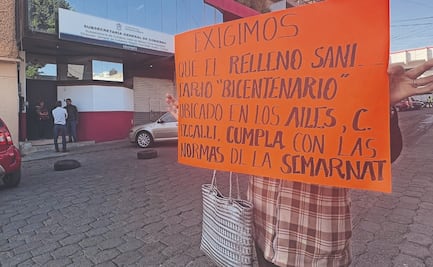 SUBSECRETARÍA GENERAL DE GOBIERNO
EXIGIMOS
QUE EL RELLENO SANI
TARIO "BICENTENARIO"
UBICADO EN LOS AILES, C.
IZCALLI, CUMPLA CON LAS
NORMAS DE LA SEMARNAT